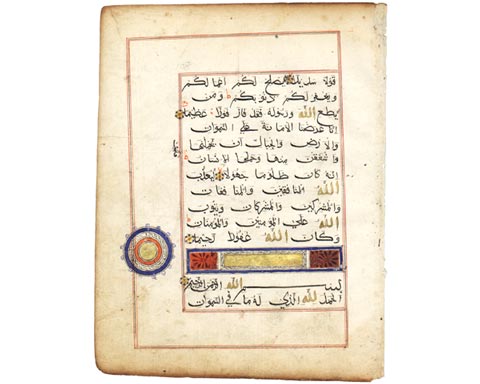 قولا سديدا يصلح لكم اعمالكم
ويغفر لكم ذنوبكم ومن
يطع الله ورسوله فقد فاز فوزا عظيما
انا عرضنا الامانة على السموات
والارض والجبال ان يحملنها
فابين
واشفقن منها وحملها الانسان
انه كان ظلوما جهولا ليعذب
الله المنافقين والمنافقات
والمشركين والمشركات ويتوب
الله على المؤمنين والمؤمنات
وكان الله غفورا رحيما
بسم الله الرحمن الرحيم
الحمد لله الذي له ما في السموات